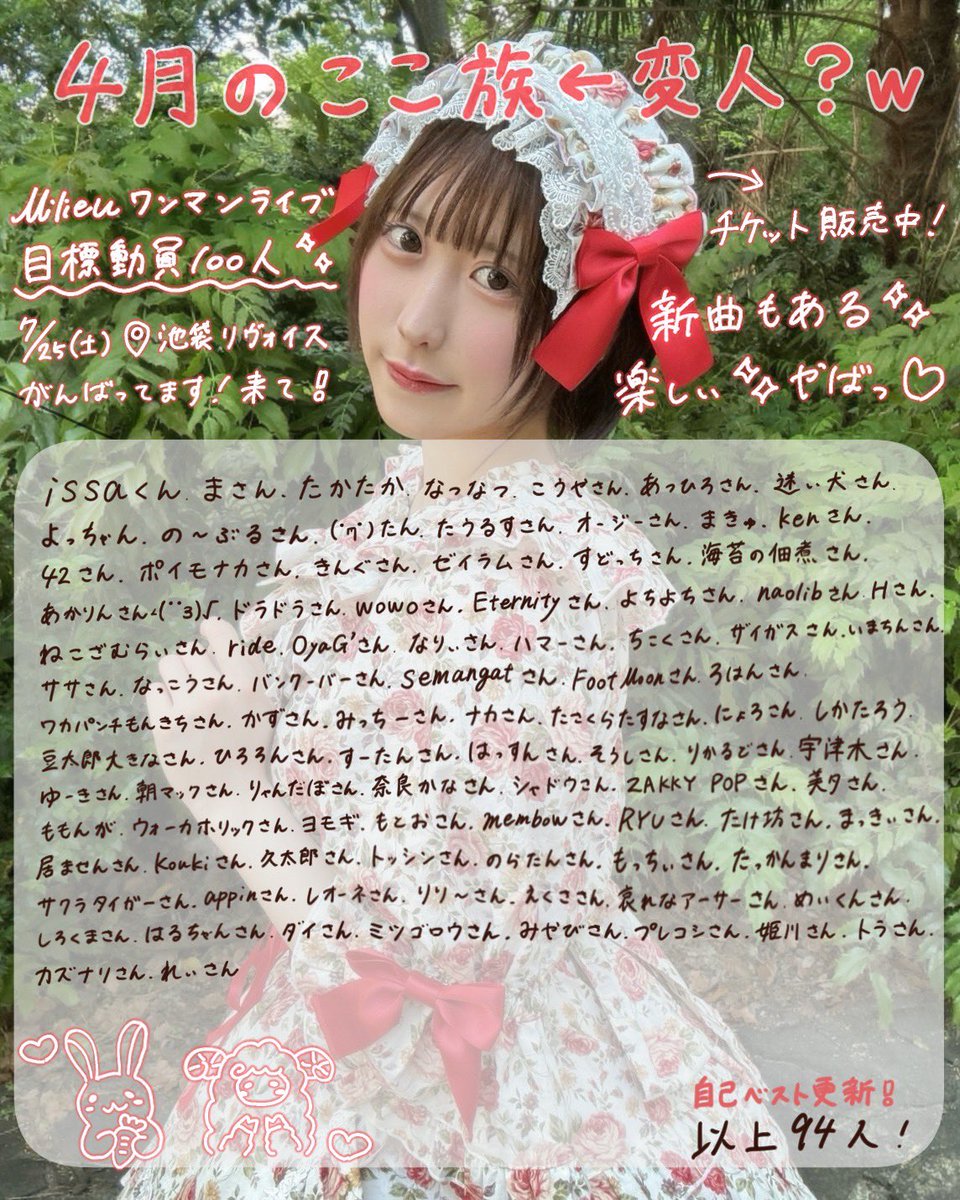 4月のここ族←変人？w
Milieu ワンマンライブ
目標動員100人
7/25(土) 池袋リヴォイス
がんばってます！来て!!
→
チケット販売中！
新曲もある
楽しぃ やばっ♡
issaくん、まさん、たかたか、なっなっ、こうやさん、あっひろさん、迷い犬さん、
よっちゃん、の～ぶるさん、たん、たうるすさん、オージーさん、まきゅ、kenさん、
42さん、ポイモナカさん、きんぐさん、ゼイラムさん、すどっちさん、海苔の佃煮さん、
あかりんさん、ドラドラさん、wowoさん、Eternityさん、よちよちさん、naolibさん、Hさん、
ねこざむらいさん、ride、OyaG'さん、なりぃさん、ハマーさん、ちこくさん、ザイガスさん、いまちんさん、
ササさん、なっこうさん、バンクーバーさん、semangatさん、FootMoonさん、ろはんさん、
ワカパンチもんきちさん、かずさん、みっちーさん、ナカさん、たさくらたすなさん、にょろさん、しかたろう、
豆太郎大きなさん、ひろろんさん、すーたんさん、はっすんさん、そうしさん、りかるどさん、宇津木さん、
ゆーきさん、朝マックさん、りゃんだぼさん、奈良かなさん、シャドウさん、ZAKKY POPさん、美夕さん、
ももんが、ウォーカホリックさん、ヨモギ、もとおさん、membowさん、RYUさん、たけ坊さん、まっきぃさん、
居ませんさん、Koukiさん、久太郎さん、トッシンさん、のらたんさん、もっちぃさん、たっかんまりさん、
サクラタイガーさん、appinさん、レオーネさん、リリ～さん、えくささん、哀れなアーサーさん、めぃくんさん、
しろくまさん、はるちゃんさん、ダイさん、ミツゴロウさん、みやびさん、プレコシさん、姫川さん、トラさん、
カズナリさん、れぃさん
自己ベスト更新!!
以上94人！